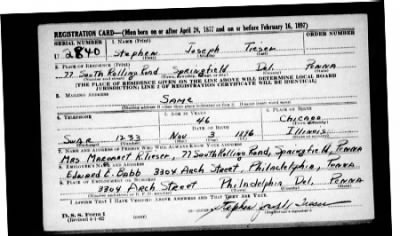 REGISTRATION CARD—(Men born on or after April 28, 1877 and on or before February 16, 1897)
SERIAL NUMBER 1. NAME (Print) ORDER NUMBER
U 2840 Stephen Joseph
(First) (Middle) (Last)
2. PLACE OF RESIDENCE (Print)
77 South Rolling Road Springfield Del. Penna
(Number and street) (Town, township, village, or city) (County) (State)
[THE PLACE OF RESIDENCE GIVEN ON THE LINE ABOVE WILL DETERMINE LOCAL BOARD
JURISDICTION; LINE 2 OF REGISTRATION CERTIFICATE WILL BE IDENTICAL]
3. MAILING ADDRESS
SAME
[Mailing address if other than place indicated on line 2. If same insert word same]
4. TELEPHONE 5. AGE IN YEARS 6. PLACE OF BIRTH
46 Chicago
DATE OF BIRTH (Town or county)
Swar 1233 Nov 3 1896 Illinois
7. NAME AND ADDRESS OF PERSON WHO WILL ALWAYS KNOW YOUR ADDRESS
Mrs Margaret K. , 77 South Rolling Road, Springfield, Penna
8. EMPLOYER'S NAME AND ADDRESS
Edward E. Babb 3304 Arch Street, Philadelphia, Penna.
9. PLACE OF EMPLOYMENT OR BUSINESS
3304 Arch Street Philadelphia Del. Penna
I AFFIRM THAT I HAVE VERIFIED ABOVE ANSWERS AND THAT THEY ARE TRUE.
D. S. S. Form 1
(Revised 4-1-42) Stephen Joseph